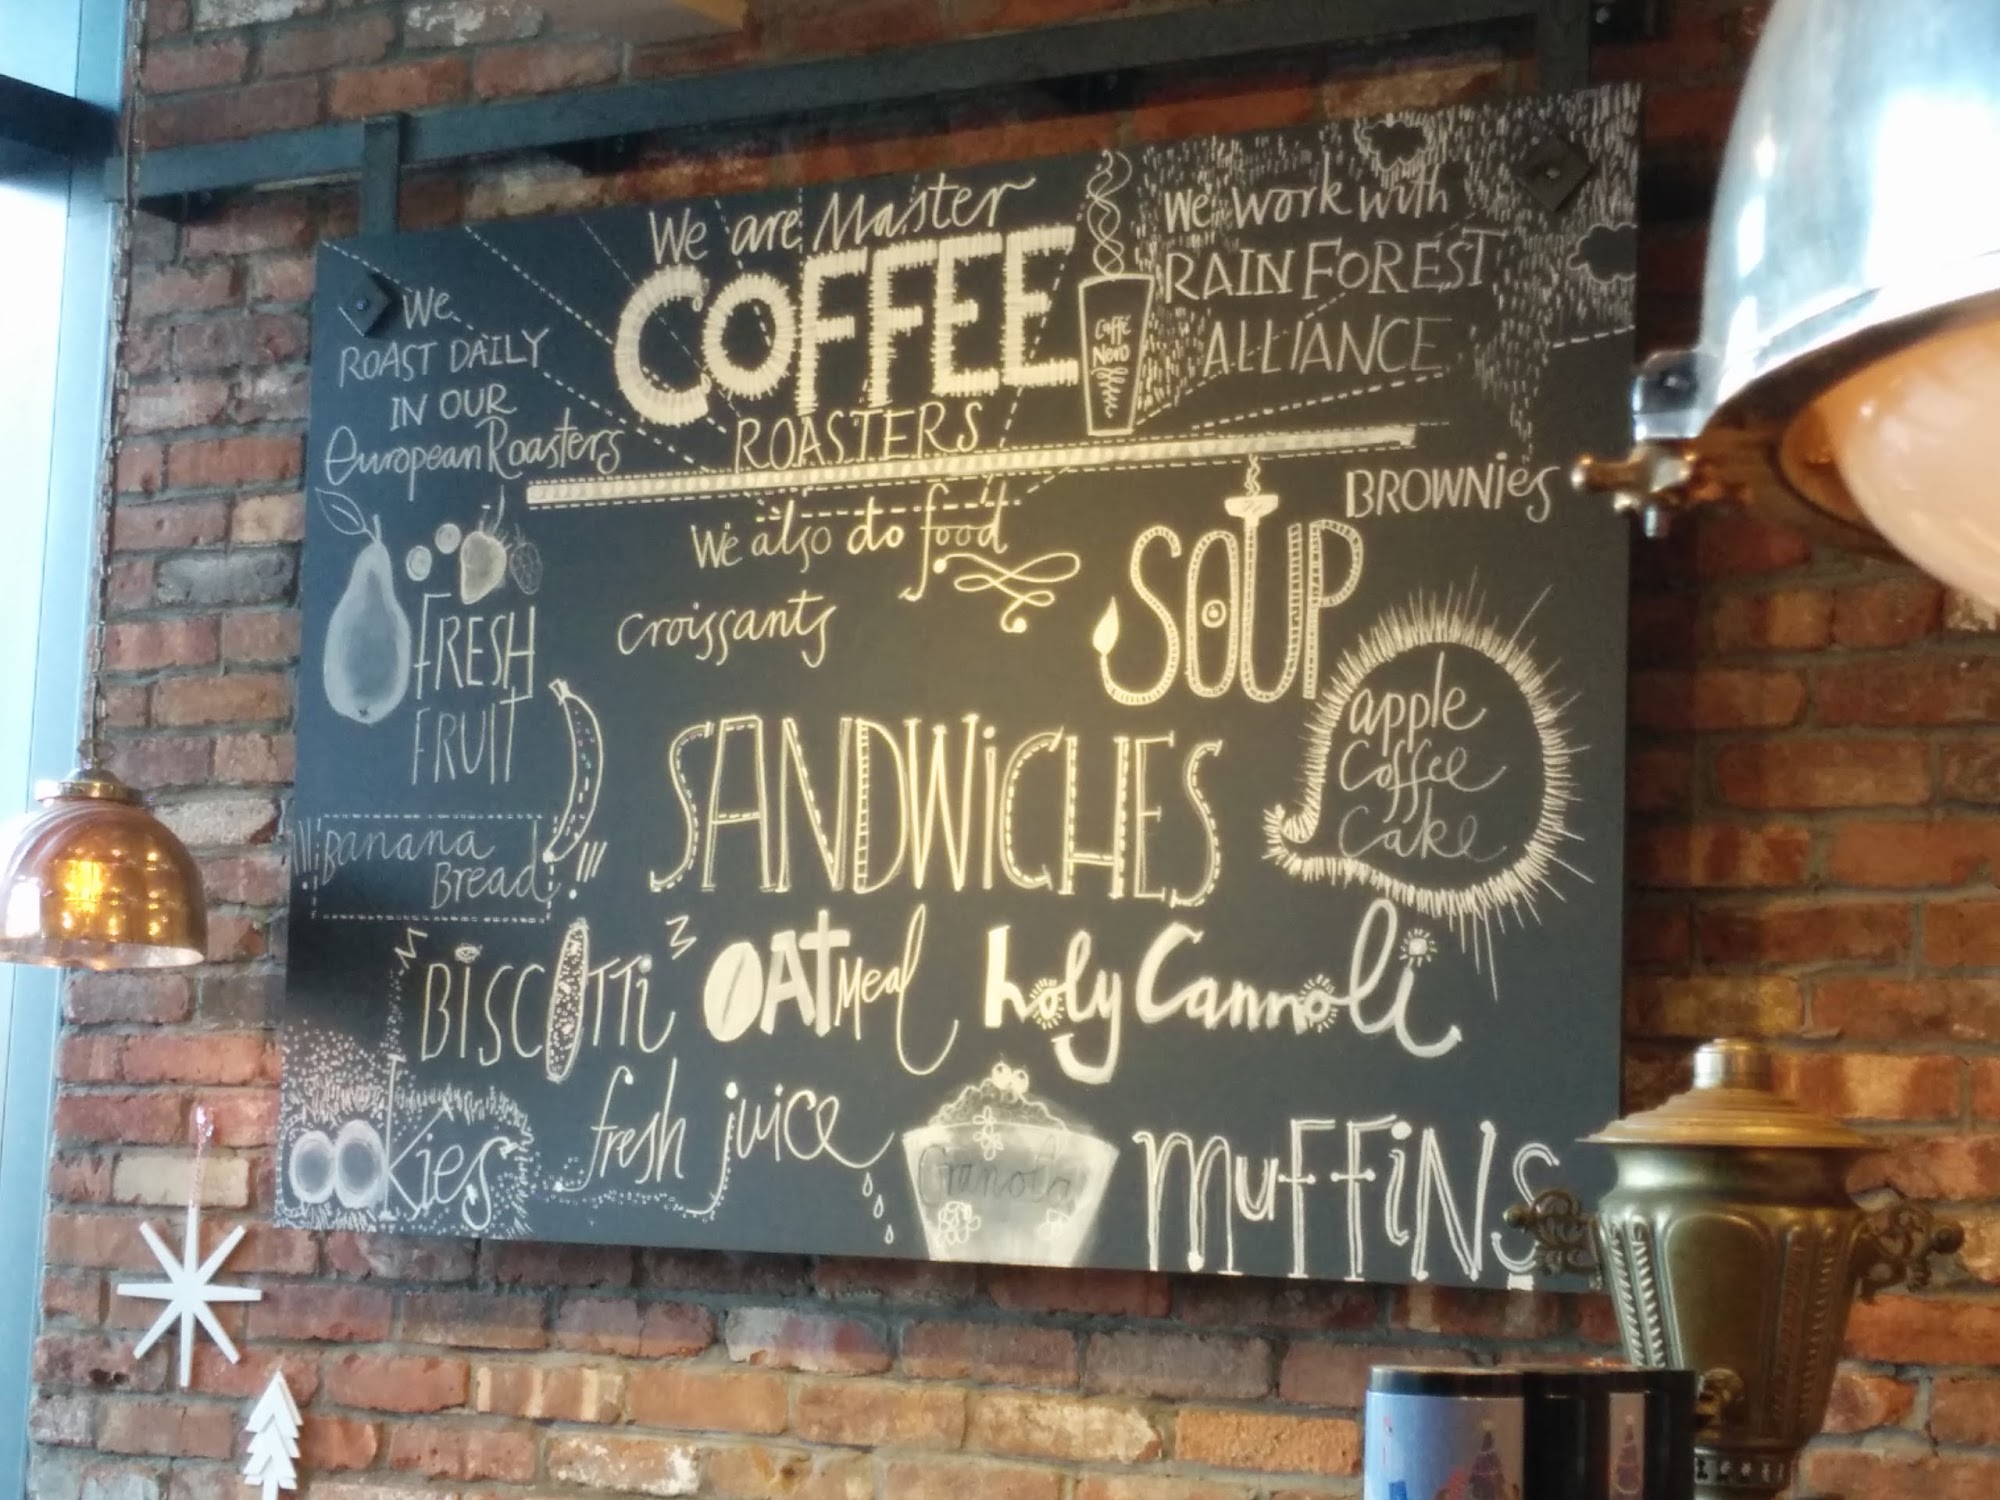 We are Master
COFFEE
ROASTERS
Caffè
Nero
We work with
RAINFOREST
ALLIANCE
We
ROAST DAILY
IN OUR
European Roasters
We also do food
BROWNiEs
SOUP
croissants
FRESH
FRUIT
apple
coffee
cake
SANDWiCHES
Banana
Bread
BiSCOTTi
OATMeal
holy Cannoli
cookies
fresh juice
Granola
MuFFiNS